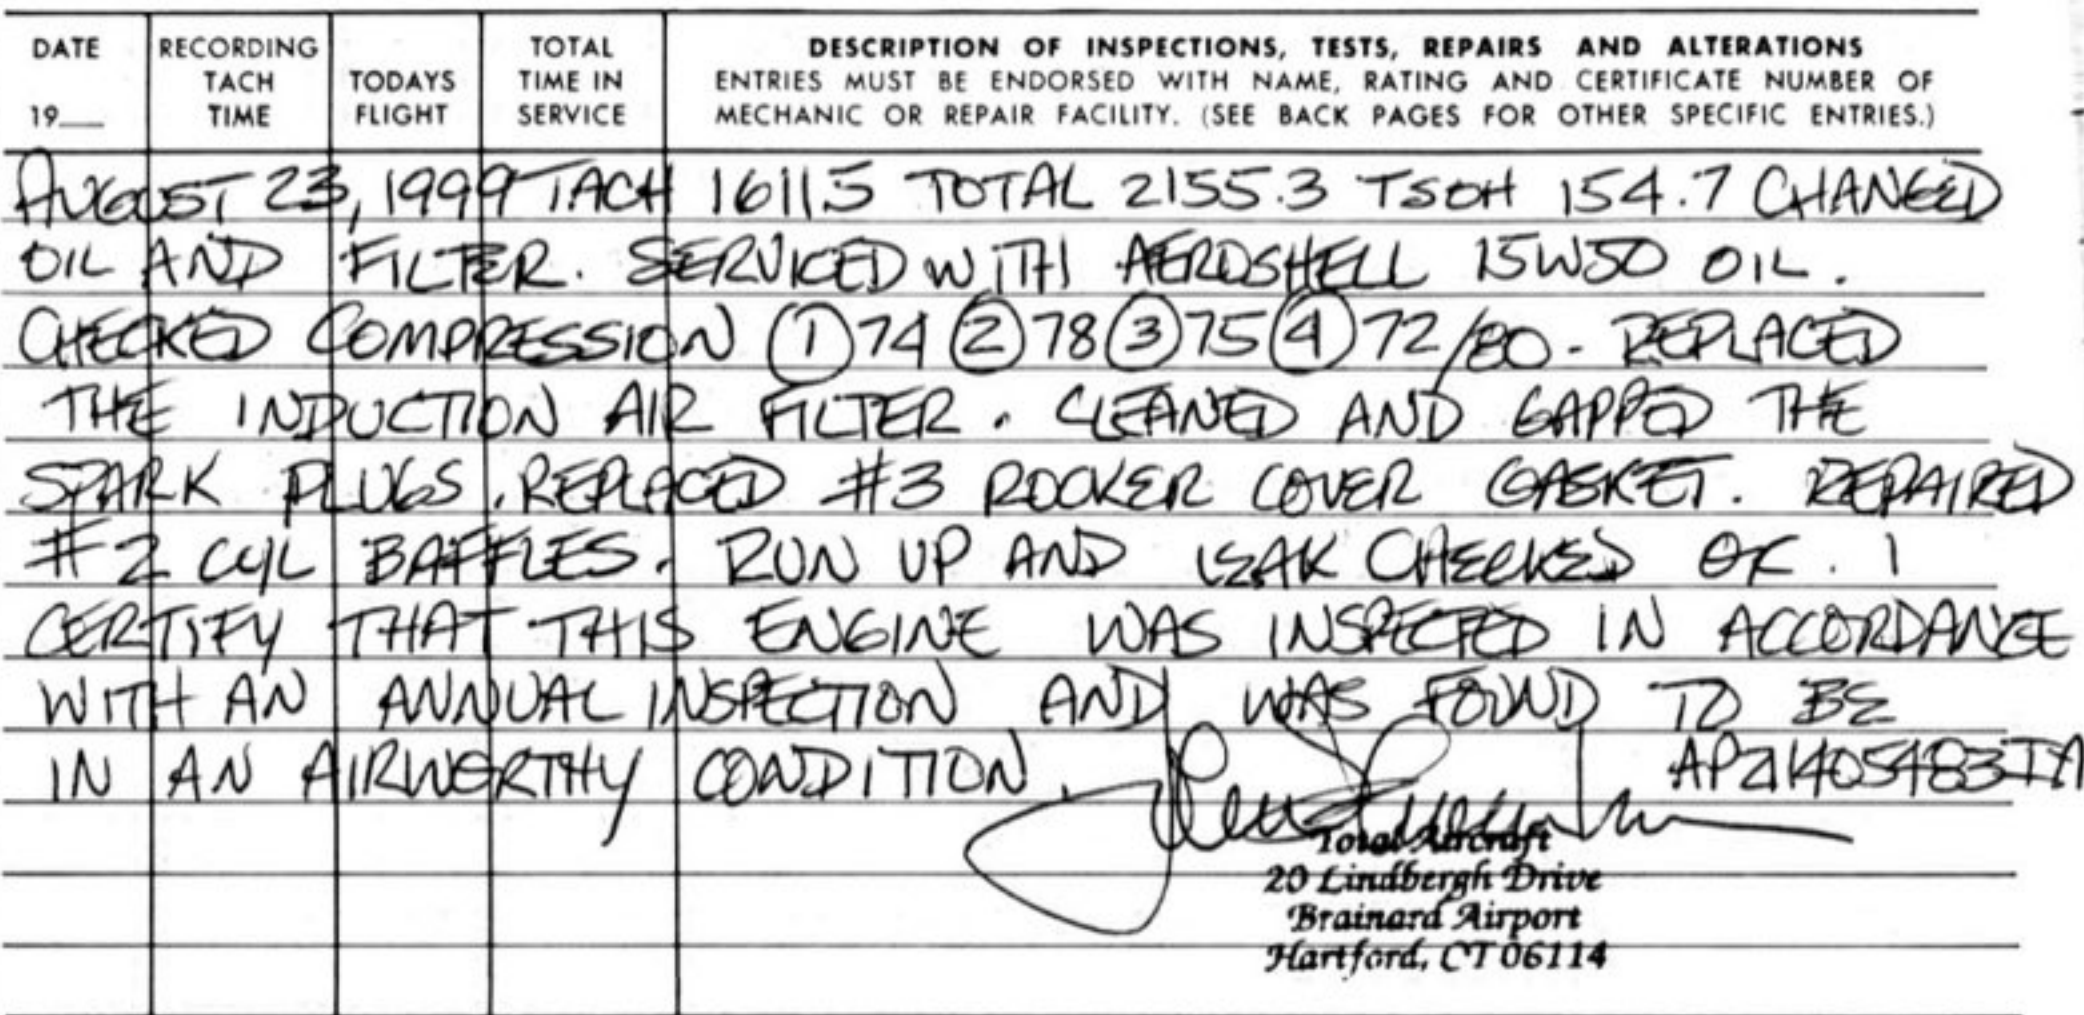 DATE
19___
RECORDING
TACH
TIME
TODAYS
FLIGHT
TOTAL
TIME IN
SERVICE
DESCRIPTION OF INSPECTIONS, TESTS, REPAIRS AND ALTERATIONS
ENTRIES MUST BE ENDORSED WITH NAME, RATING AND CERTIFICATE NUMBER OF
MECHANIC OR REPAIR FACILITY. (SEE BACK PAGES FOR OTHER SPECIFIC ENTRIES.)
AUGUST 23, 1999 TACH 1611.5 TOTAL 2155.3 TSOH 154.7 CHANGED
OIL AND FILTER. SERVICED WITH AEROSHELL 15W50 OIL.
CHECKED COMPRESSION ① 74 ② 78 ③ 75 ④ 72/80. REPLACED
THE INDUCTION AIR FILTER. CLEANED AND GAPPED THE
SPARK PLUGS. REPLACED #3 ROCKER COVER GASKET. REPAIRED
#2 CYL BAFFLES. RUN UP AND LEAK CHECKED OK. I
CERTIFY THAT THIS ENGINE WAS INSPECTED IN ACCORDANCE
WITH AN ANNUAL INSPECTION AND WAS FOUND TO BE
IN AN AIRWORTHY CONDITION.
Total Aircraft
20 Lindbergh Drive
Brainard Airport
Hartford, CT 06114